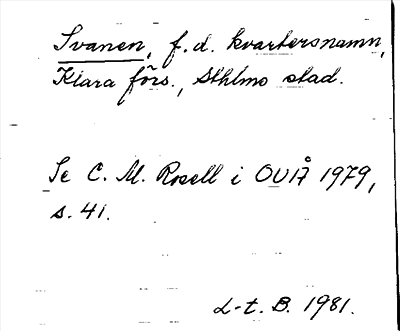 Svanen, f.d. kvartersnamn,
Klara förs., Sthlms stad.
Se C. M. Rosell i OUÅ 1979,
s. 41.
L-t. B. 1981.